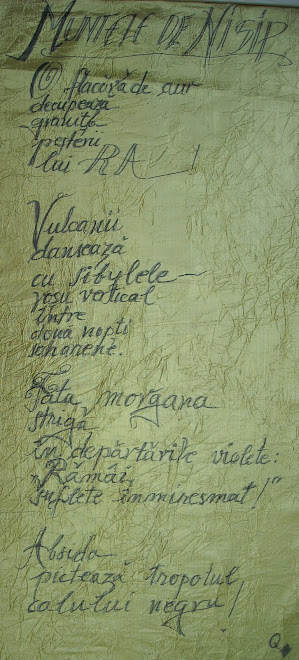 MUNTELE DE NISIP
O flacără de aur
decupează
granița
peșterii
lui RA!
Vulcanii
dansează
cu sibylele –
roșu vertical
între
două nopți
sahariene.
Fata morgana
strigă
în depărtările violete:
„Rămâi,
suflete immiresmat!"
Absida
pictează tropotul
calului negru!
Q